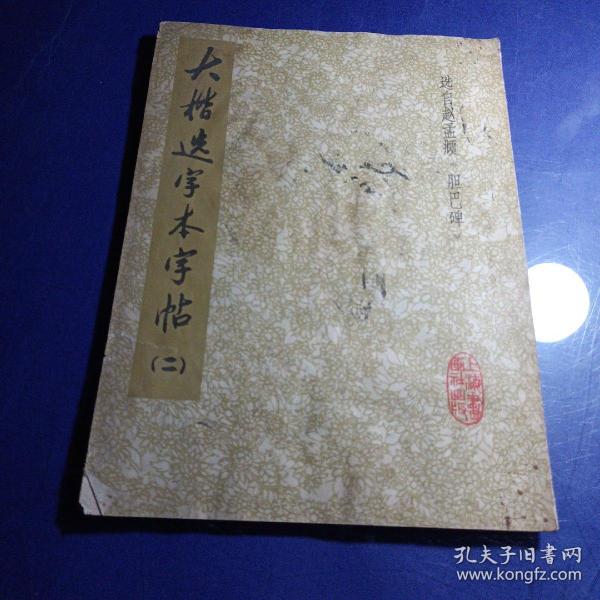 大楷选字本字帖
(二)
选自赵孟頫 胆巴碑
上海书画社出版
孔夫子旧书网
www.kongfz.com